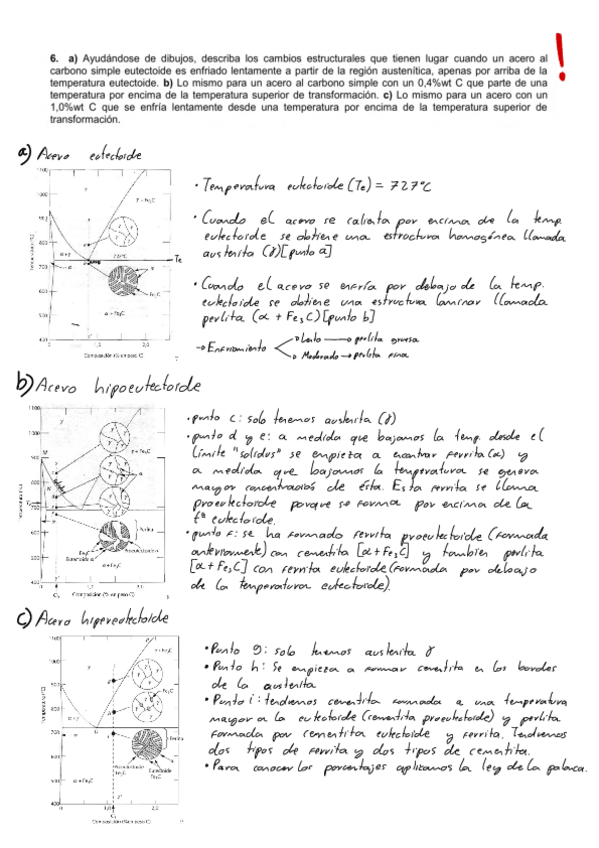 6. a) Ayudándose de dibujos, describa los cambios estructurales que tienen lugar cuando un acero al
carbono simple eutectoide es enfriado lentamente a partir de la región austenítica, apenas por arriba de la
temperatura eutectoide. b) Lo mismo para un acero al carbono simple con un 0,4%wt C que parte de una
temperatura por encima de la temperatura superior de transformación. c) Lo mismo para un acero con un
1,0%wt C que se enfría lentamente desde una temperatura por encima de la temperatura superior de
transformación.
!
a) Acero eutectoide
• Temperatura eutectoide (Te) = 727°C
• Cuando el acero se calienta por encima de la temp.
eutectoide se obtiene una estructura homogénea llamada
austenita (γ) [punto a]
• Cuando el acero se enfría por debajo de la temp.
eutectoide se obtiene una estructura laminar llamada
perlita (α + Fe3C) [punto b]
→ Enfriamiento
Lento → perlita gruesa
Moderado → perlita fina
γ
γ + Fe3C
727°C
Te
α
Fe3C
α + Fe3C
0
1,0
2,0
Composición (% en peso C)
b) Acero hipoeutectoide
• punto c: solo tenemos austenita (γ)
• punto d y e: a medida que bajamos la temp. desde el
límite "solidus" se empieza a encontrar ferrita (α) y
a medida que bajamos la temperatura se genera
mayor concentración de ésta. Esta ferrita se llama
proeutectoide porque se forma por encima de la
tª eutectoide.
• punto f: se ha formado ferrita proeutectoide (formada
anteriormente) con cementita [α + Fe3C] y también perlita
[α + Fe3C] con ferrita eutectoide (formada por debajo
de la temperatura eutectoide).
γ + Fe3C
Perlita
Fe3C
α + Fe3C
0
1,0
2,0
Composición (% en peso C)
c) Acero hipereutectoide
• Punto g: solo tenemos austenita γ
• Punto h: Se empieza a formar cementita en los bordes
de la austenita
• Punto i: tendremos cementita formada a una temperatura
mayor a la eutectoide (cementita proeutectoide) y perlita
formada por cementita eutectoide y ferrita. Tendremos
dos tipos de ferrita y dos tipos de cementita.
• Para conocer los porcentajes aplicamos la ley de la palanca.
γ + Fe3C
Fe3C
Perlita
α + Fe3C
0
1,0
2,0
Composición (% en peso C)